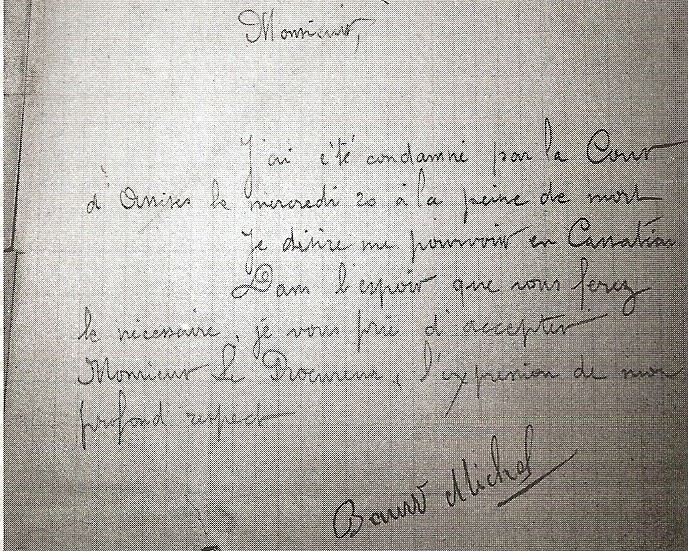 Monsieur,
J'ai été condamné par la Cour
d'Assises le mercredi 20 à la peine de mort
Je désire me pourvoir en Cassation
Dans l'espoir que vous ferez
le nécessaire, je vous prie d'accepter
Monsieur Le Procureur, l'expression de mon
profond respect
Michel